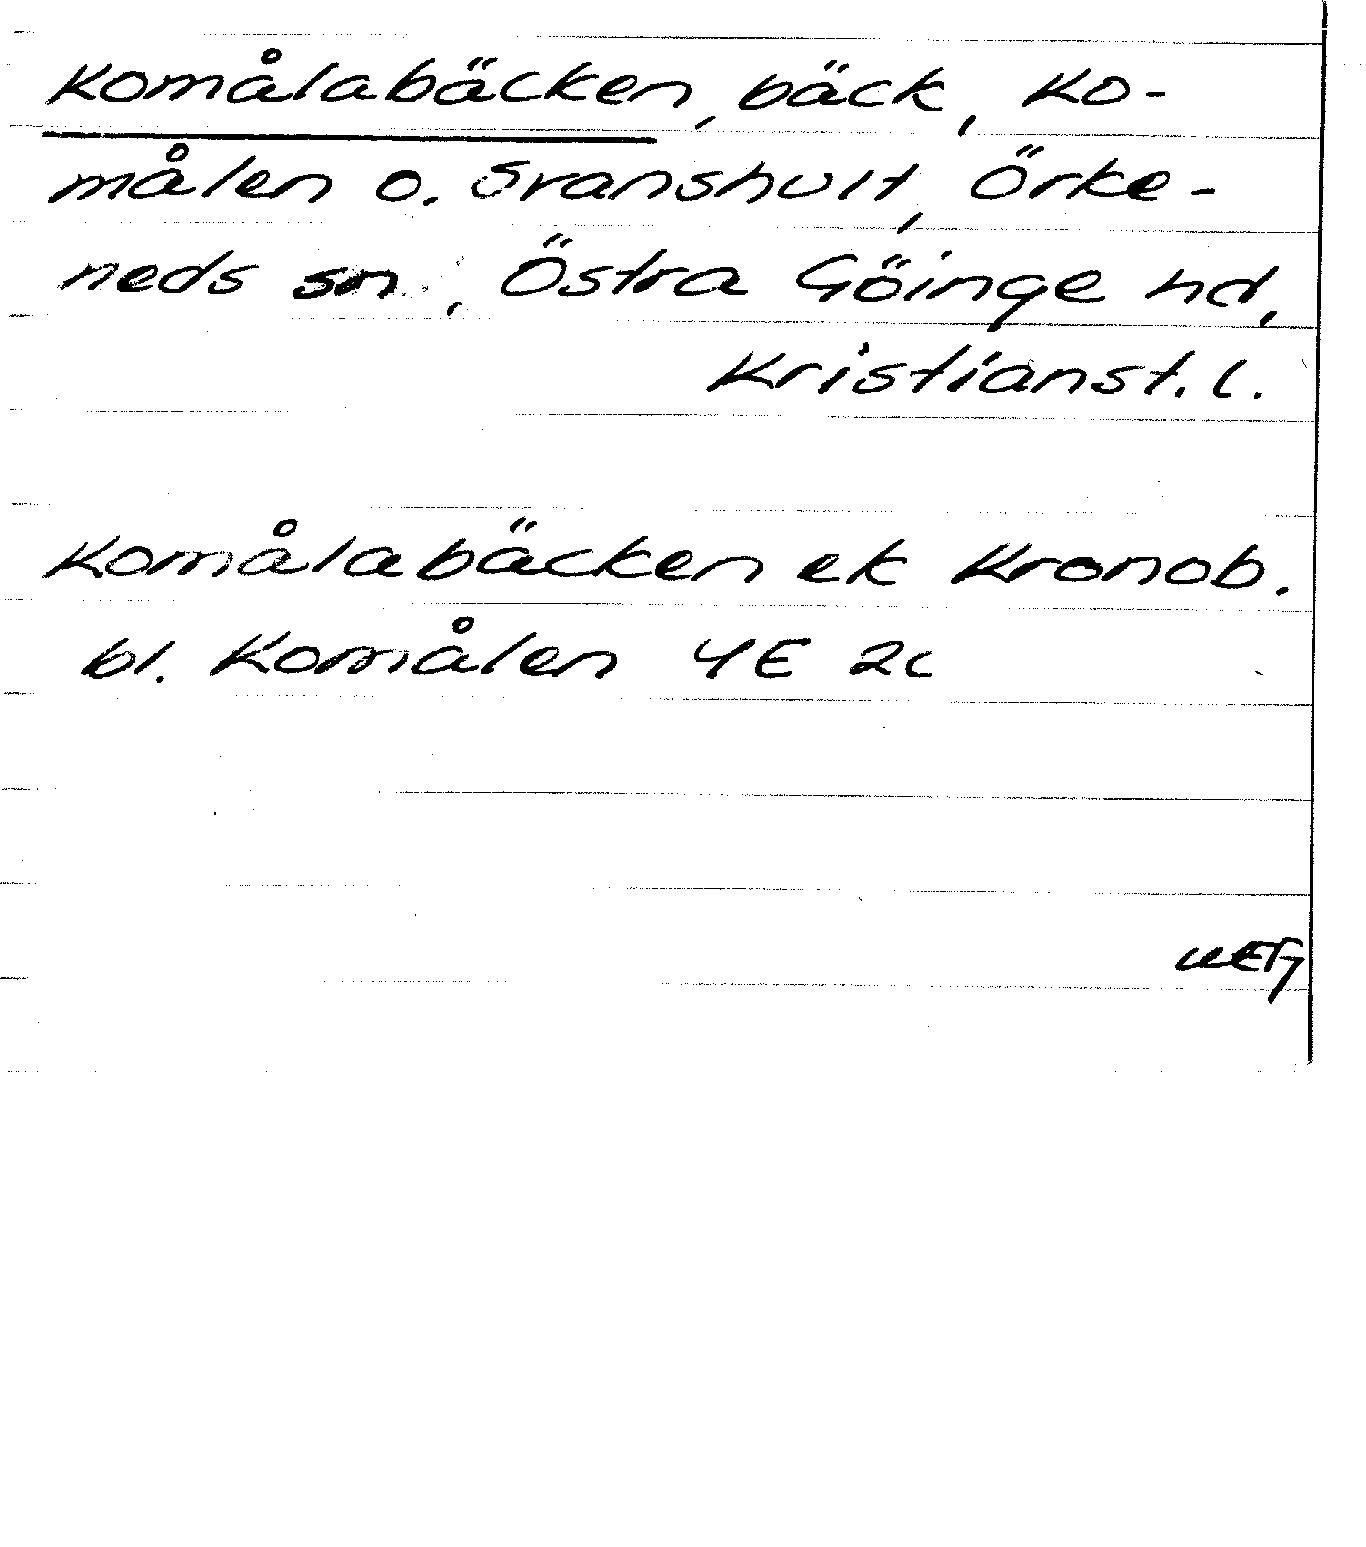 Komålabäcken, bäck, Ko-
målen o. Svanshult, Örke-
neds sn, Östra Göinge hd,
Kristianst. l.
Komålabäcken ek Kronob.
bl. Komålen 4E 2c